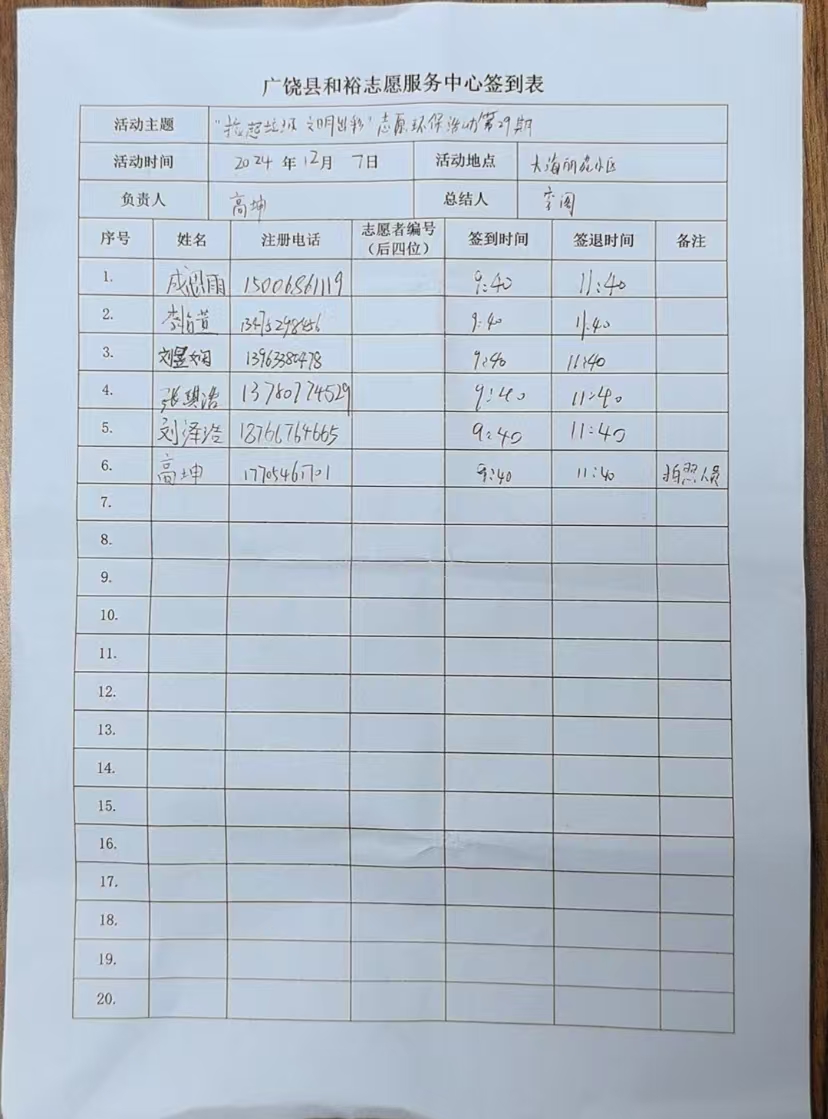 广饶县和裕志愿服务中心签到表
活动主题 "捡起垃圾 文明出彩"志愿环保活动第29期
活动时间 2024 年 12 月 7 日 活动地点 大海丽苑小区
负责人 高坤 总结人 李阁
序号 姓名 注册电话 志愿者编号（后四位） 签到时间 签退时间 备注
1. 成思雨 15006861119 9:40 11:40
2. 9:40 11:40
3. 刘昱娴 13963380478 9:40 11:40
4. 张琪浩 13780774529 9:40 11:40
5. 刘泽浩 18766764665 9:40 11:40
6. 高坤 17705461701 9:40 11:40 拍照人员
7.
8.
9.
10.
11.
12.
13.
14.
15.
16.
17.
18.
19.
20.